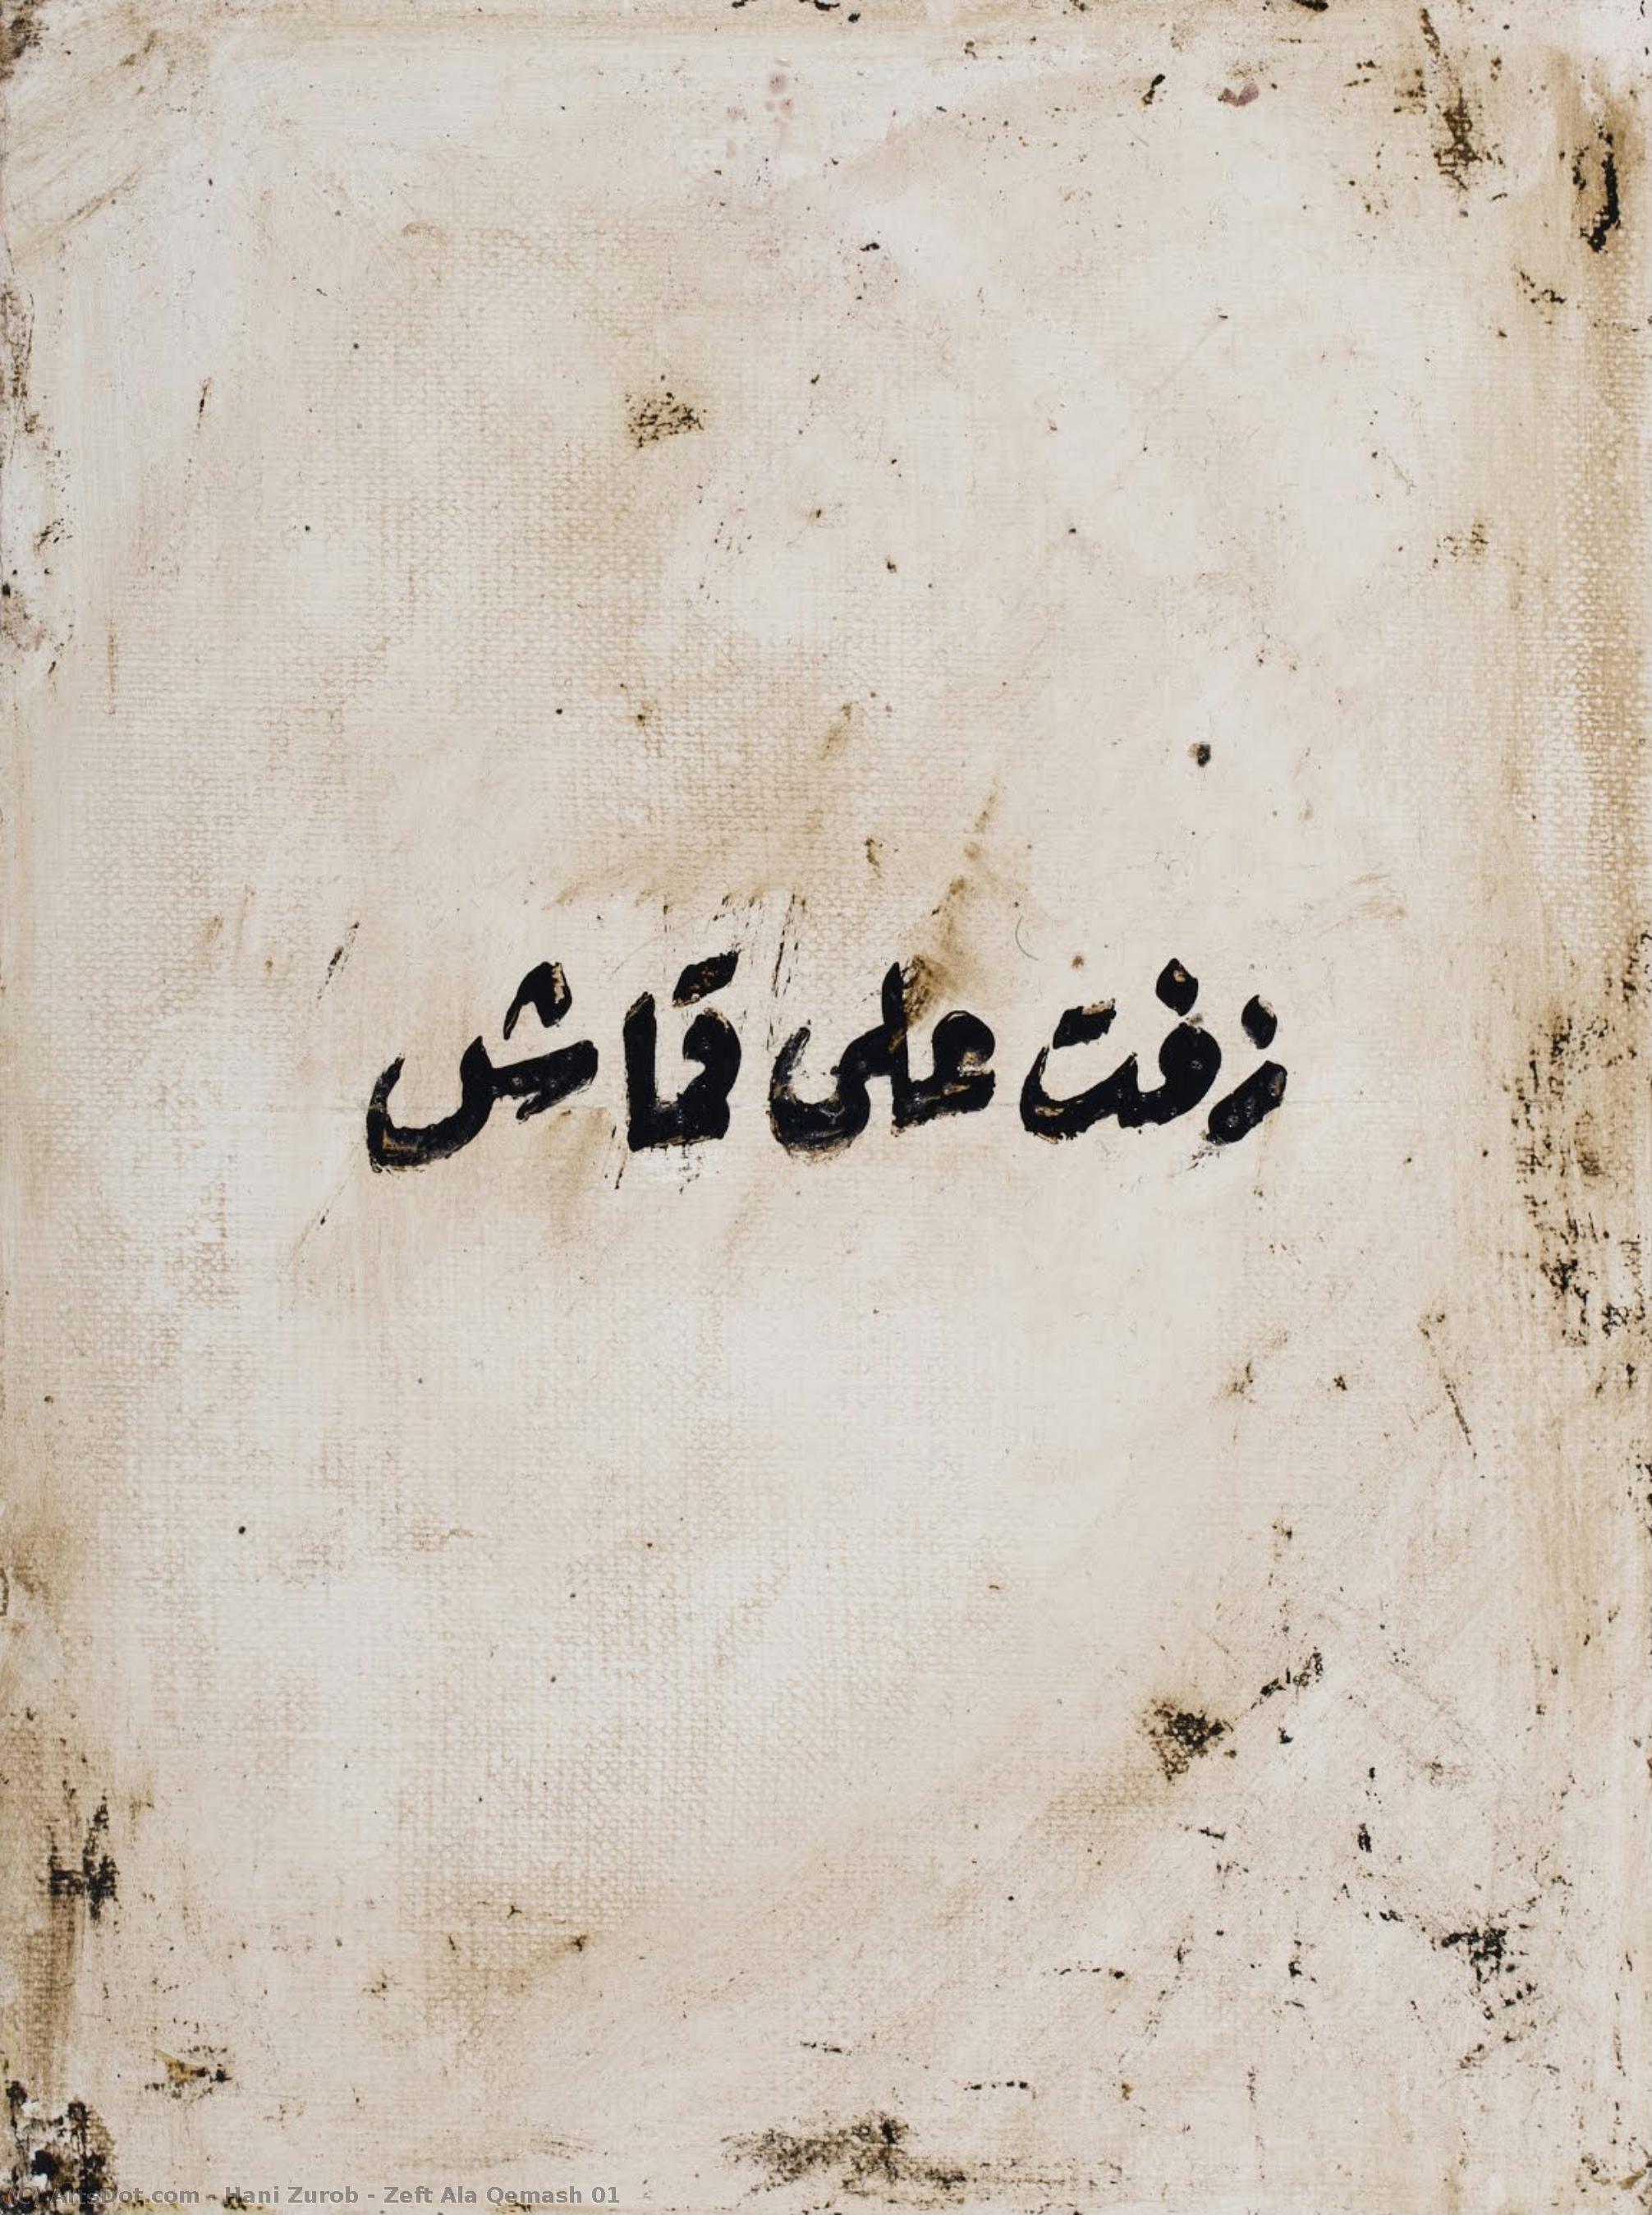 زفت على قماش
(C) ArtsDot.com - Hani Zurob - Zeft Ala Qemash 01